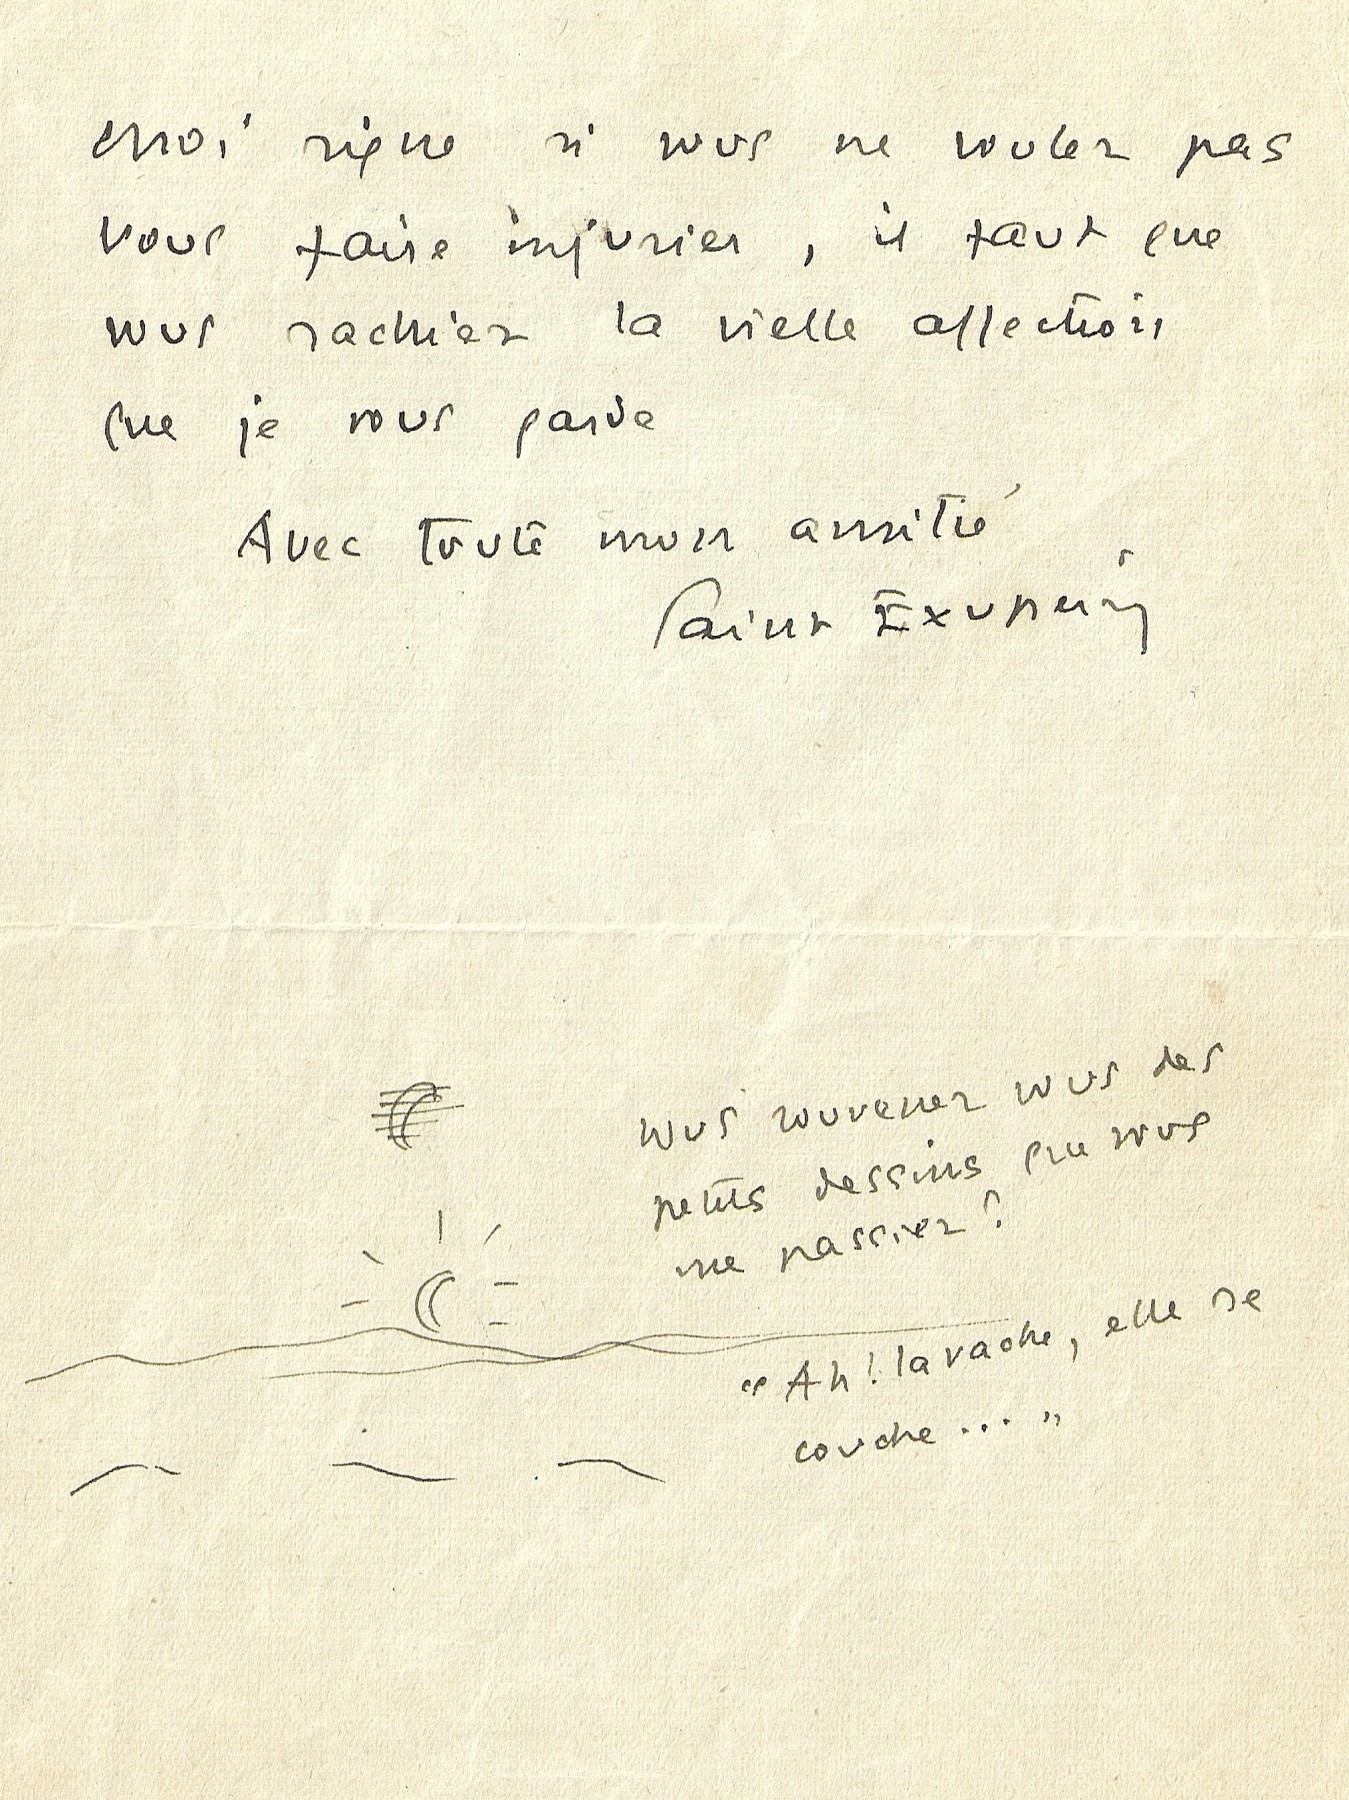 moi signe si vous ne voulez pas
vous faire injurier, il faut que
vous sachiez la vielle affection
que je vous garde
Avec toute mon amitié
Saint Exupéry
Vous souvenez vous des
petits dessins que vous
me passiez?
"Ah! la vache, elle se
couche..."